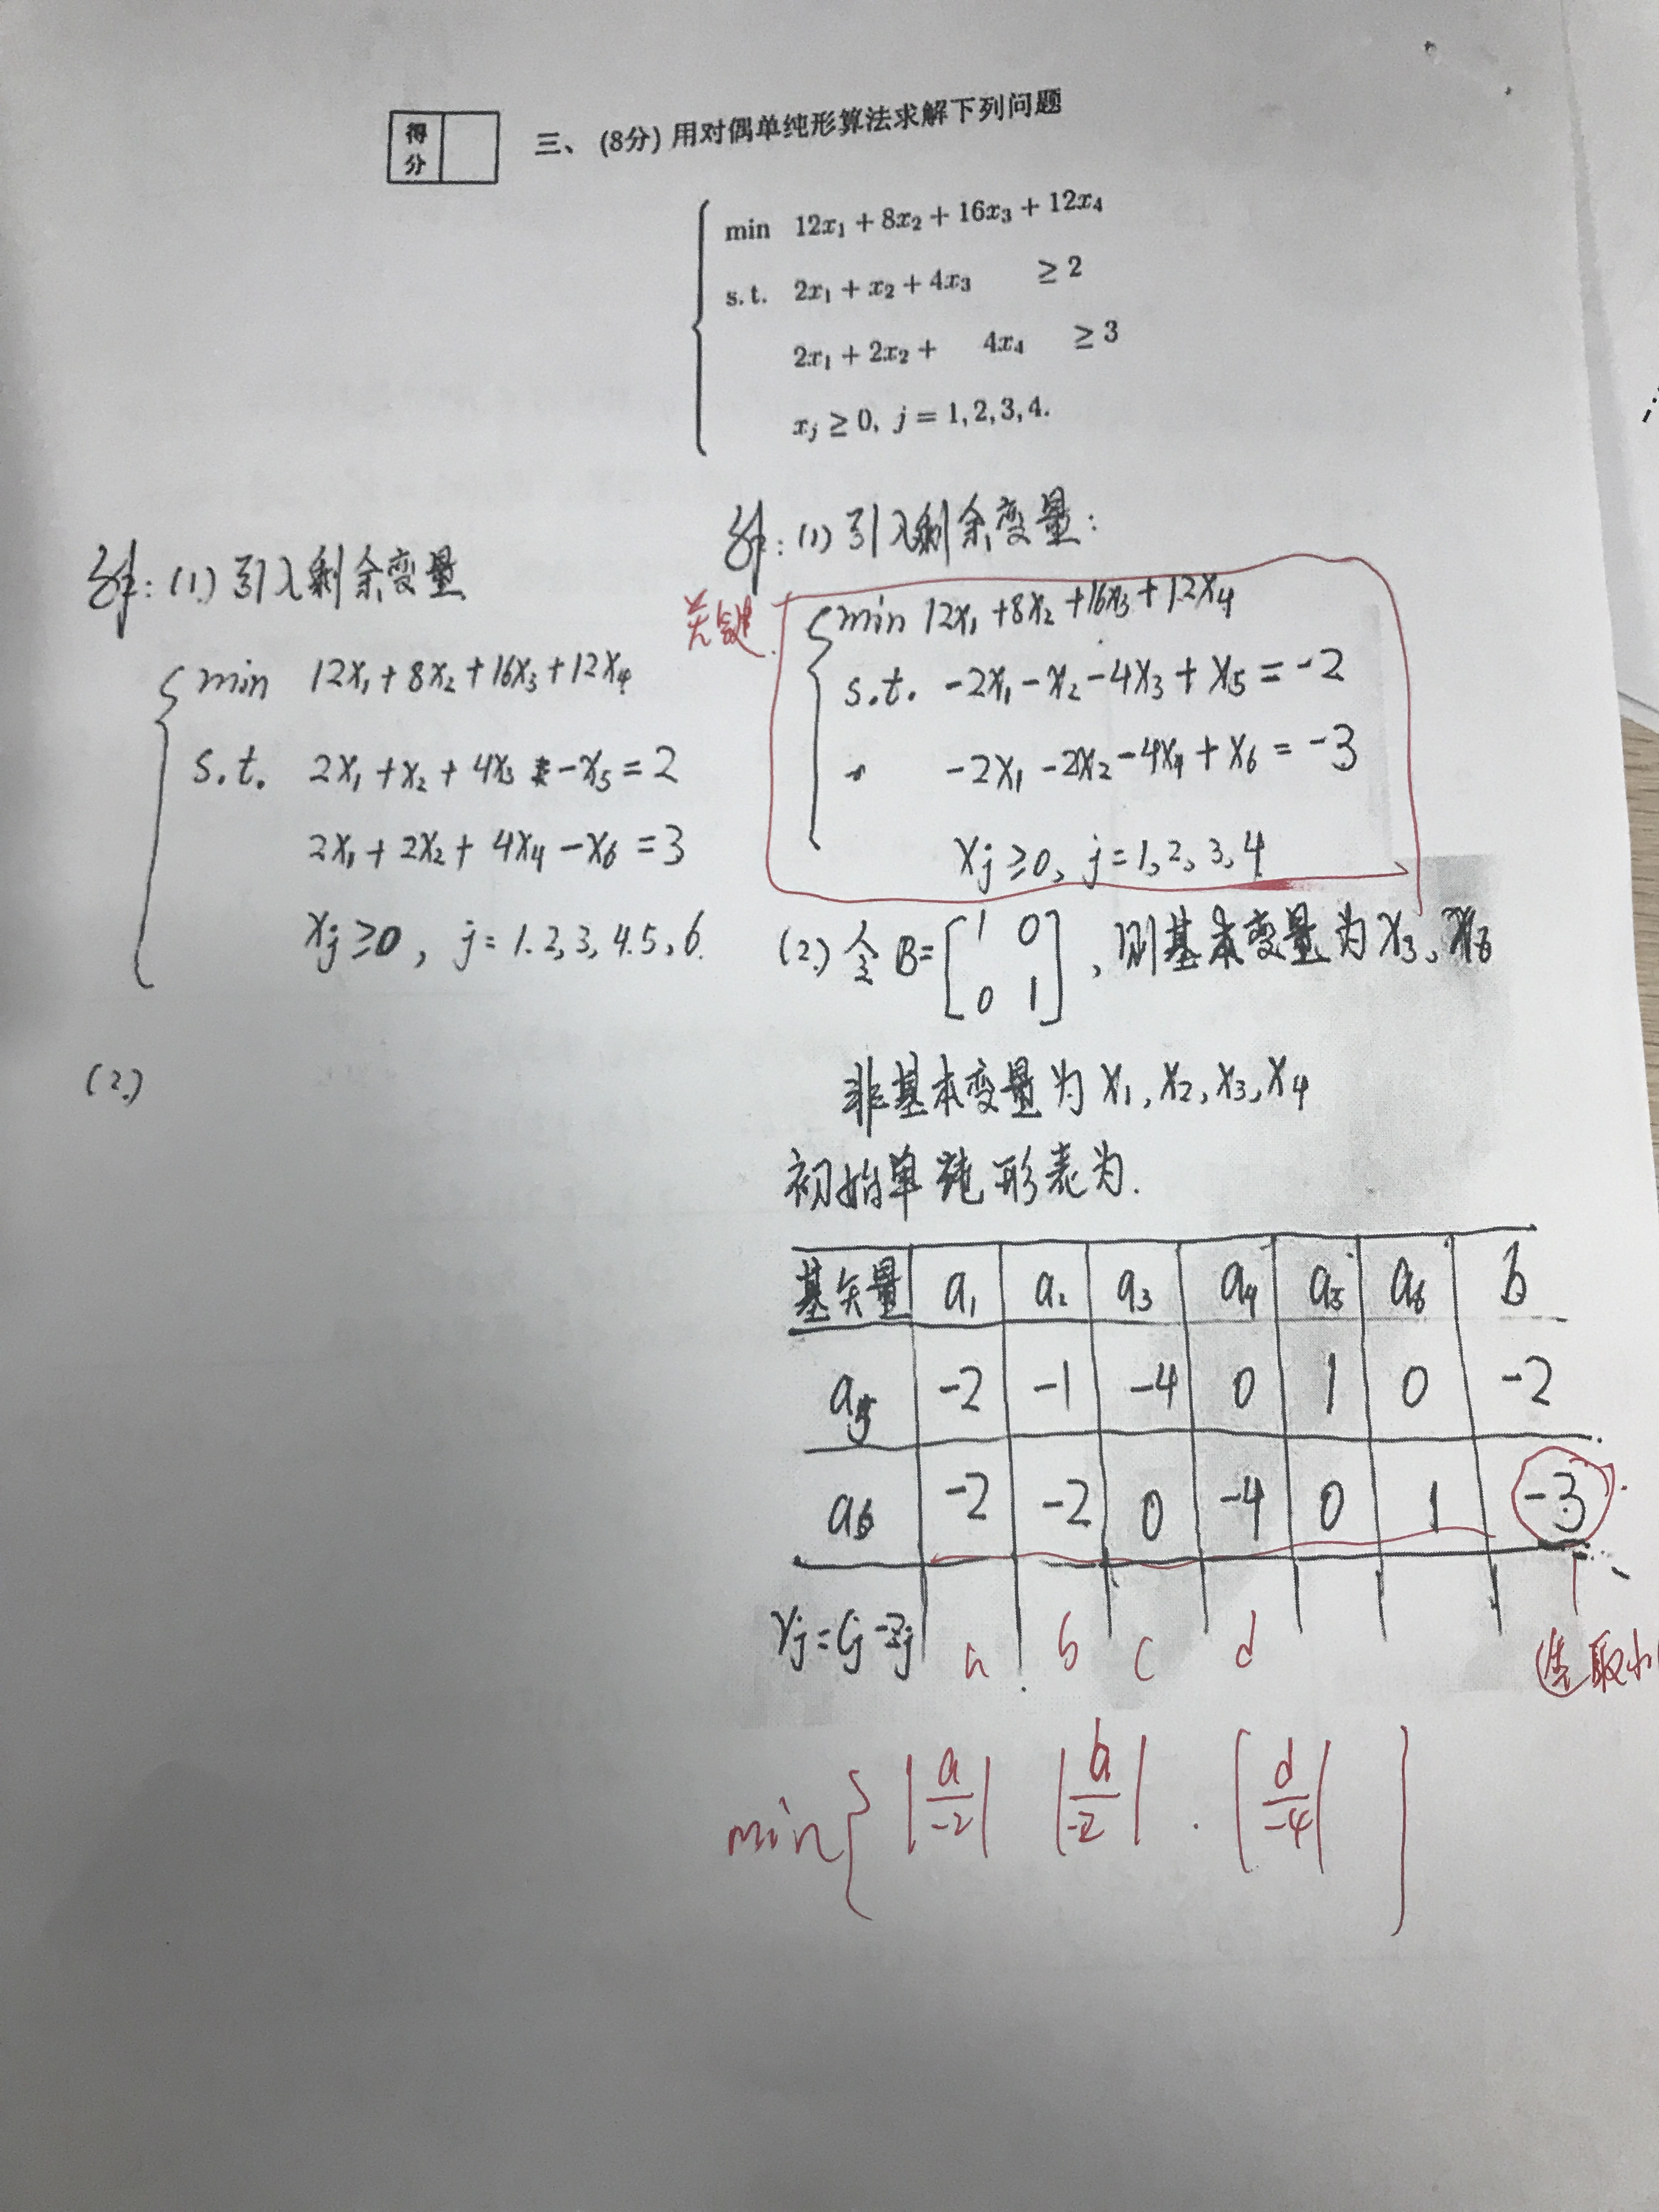 得分
三、 (8分) 用对偶单纯形算法求解下列问题
min 12x₁ + 8x₂ + 16x₃ + 12x₄
s.t. 2x₁ + x₂ + 4x₃ ≥ 2
2x₁ + 2x₂ + 4x₄ ≥ 3
xⱼ ≥ 0, j = 1, 2, 3, 4.
解: (1.) 引入剩余变量
min 12x₁ + 8x₂ + 16x₃ + 12x₄
s.t. 2x₁ + x₂ + 4x₃ - x₅ = 2
2x₁ + 2x₂ + 4x₄ - x₆ = 3
xⱼ ≥ 0, j = 1. 2, 3, 4. 5, 6.
(2.)
解: (1) 引入剩余变量:
关键.
min 12x₁ + 8x₂ + 16x₃ + 12x₄
s.t. -2x₁ - x₂ - 4x₃ + x₅ = -2
-2x₁ - 2x₂ - 4x₄ + x₆ = -3
xⱼ ≥ 0, j = 1, 2, 3, 4
(2.) 令 B = [1 0
0 1], 则基本变量为 x₃, x₆
非基本变量为 x₁, x₂, x₃, x₄
初始单纯形表为.
基矢量 a₁ a₂ a₃ a₄ a₅ a₆ b
a₅ -2 -1 -4 0 1 0 -2
a₆ -2 -2 0 -4 0 1 -3
rⱼ = cⱼ - zⱼ a b c d
选取小
min { |a/-2| |b/-2| . |d/-4| }